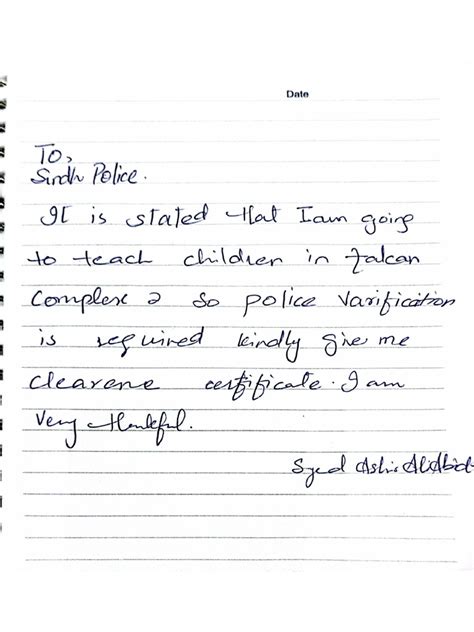 Date
To,
Sindh Police.
It is stated that I am going
to teach children in falcan
Complex 2 so police varification
is required kindly give me
clearene certificate. I am
Very thankful.
Syed